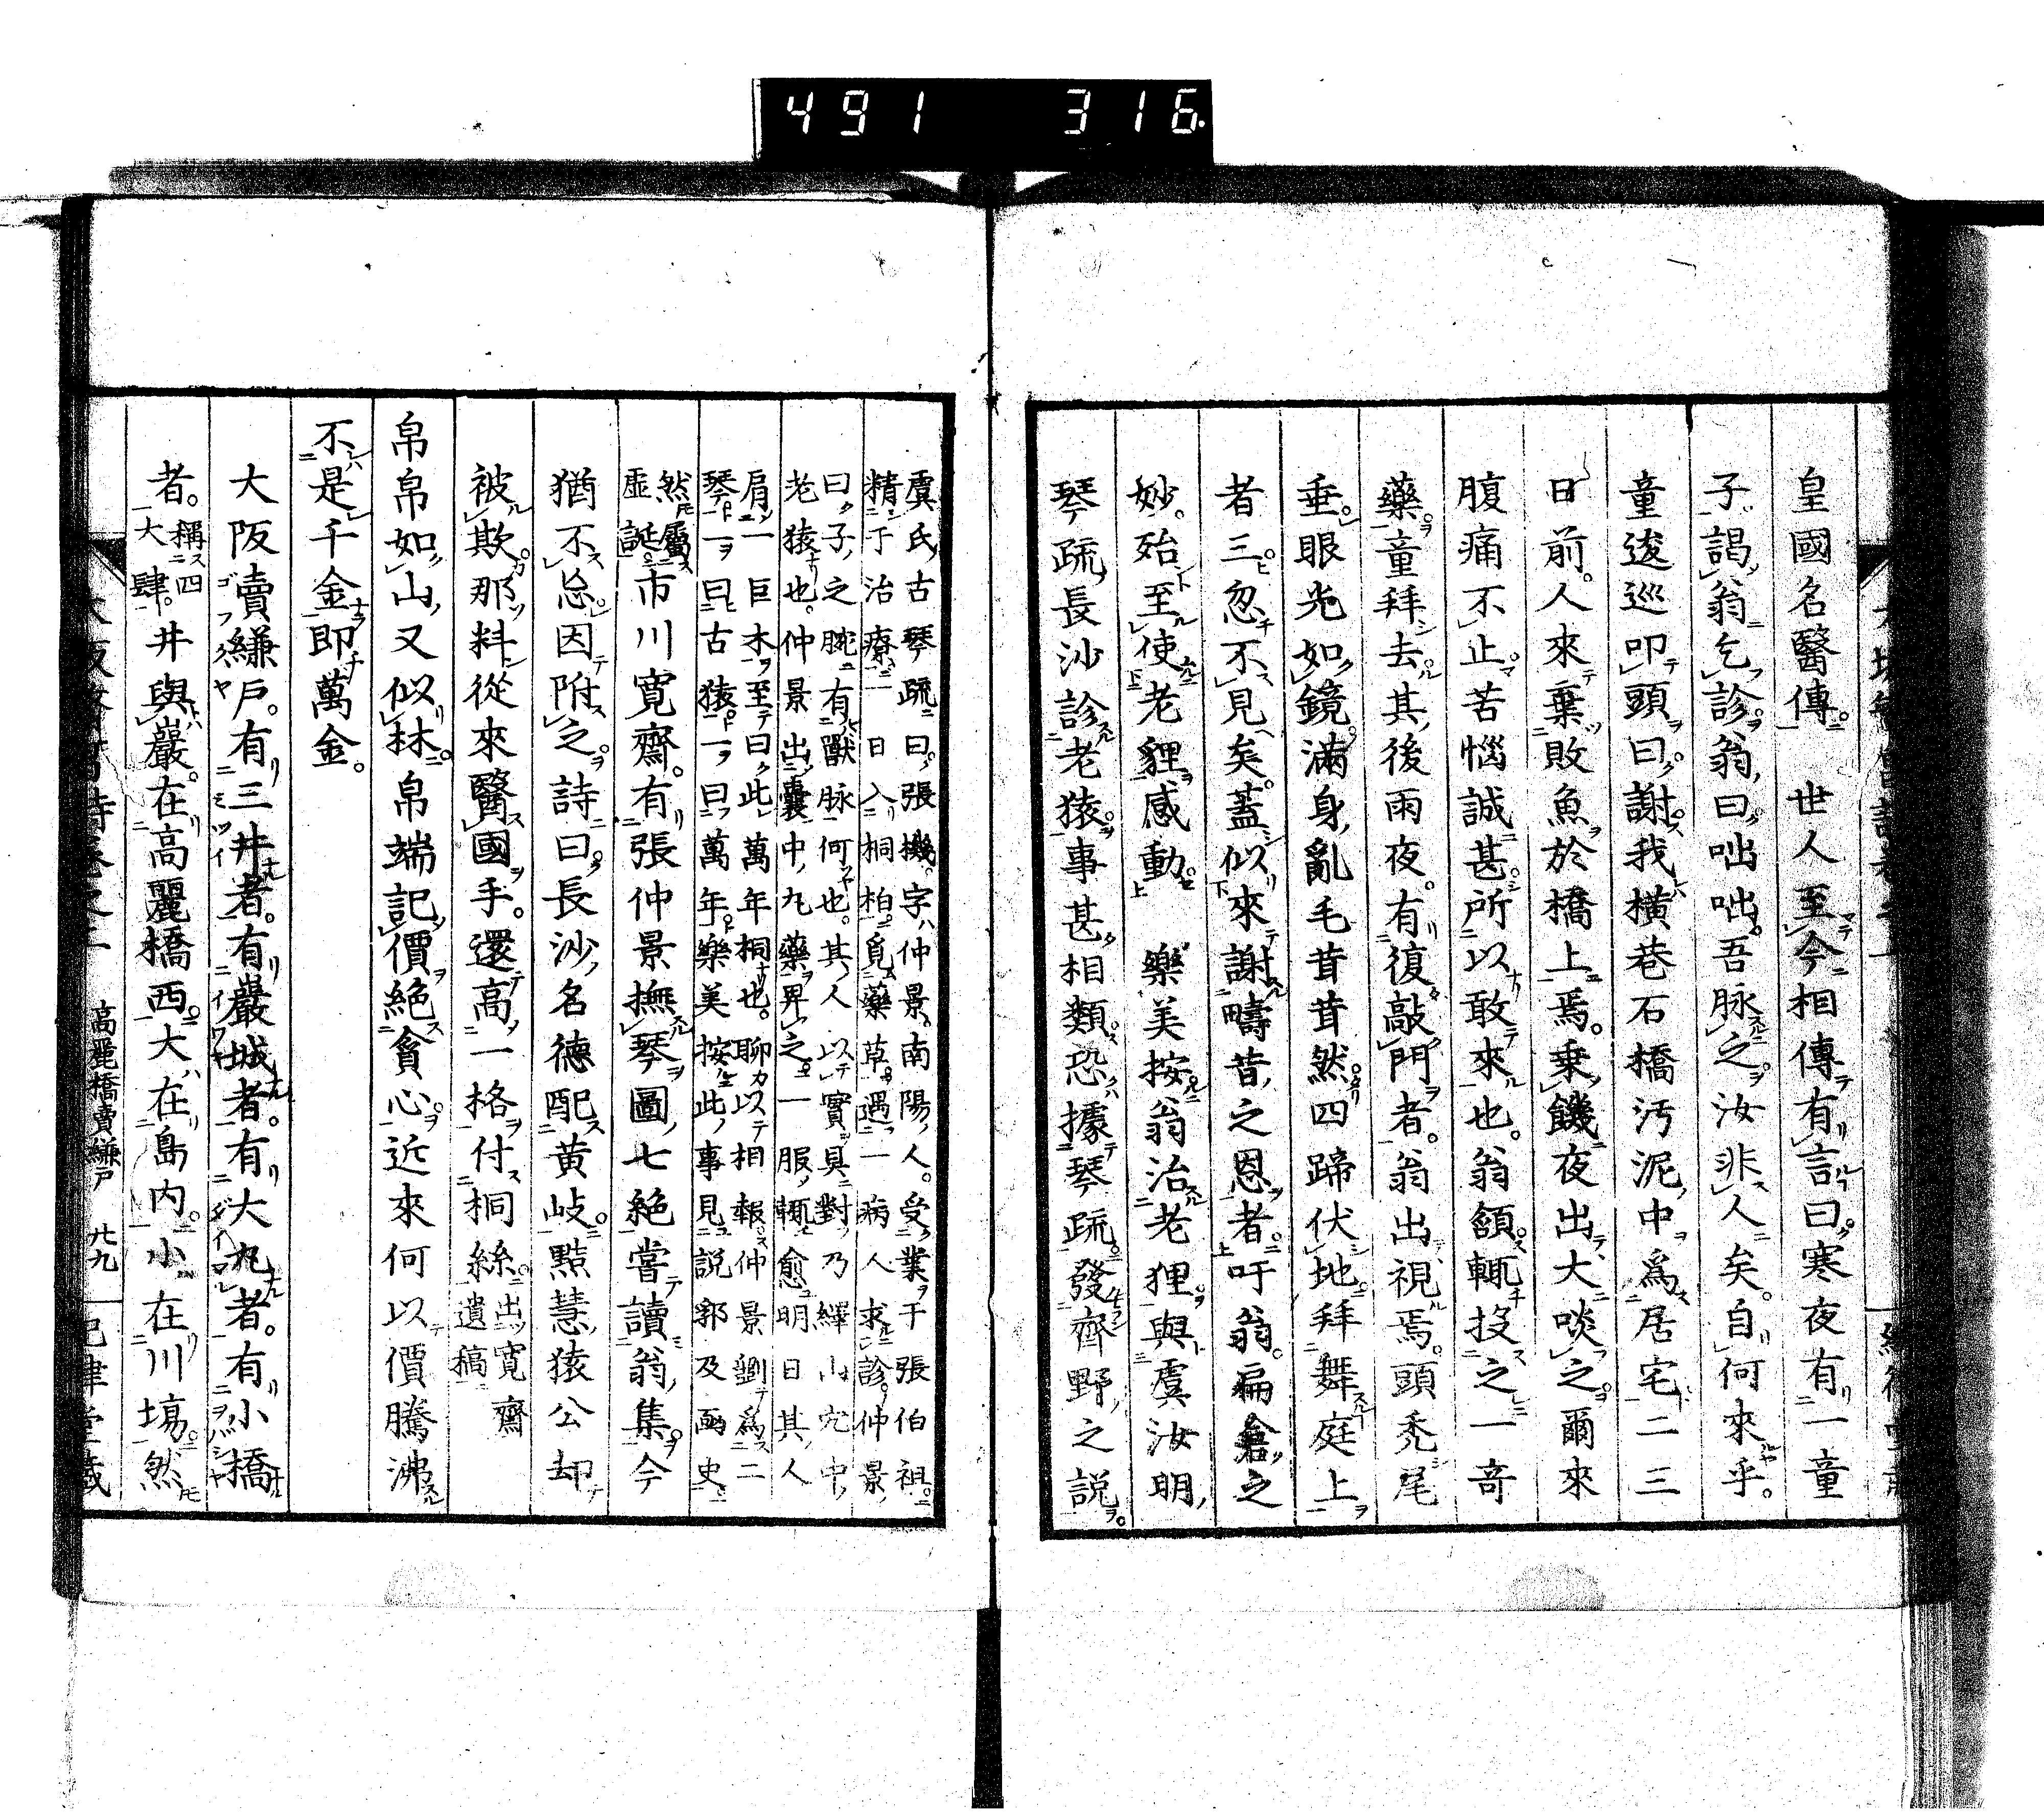 491 316
皇國名醫傳 世人至今相傳有言曰寒夜有一童
子謁翁乞診翁曰咄咄吾脉之汝非人矣自何來乎
童逡巡叩頭曰謝我橫巷石橋汚泥中爲居宅二三
日前人來棄敗魚於橋上焉乗饑夜出大啖之爾來
腹痛不止苦惱誠甚所以敢來也翁頷輒投之一奇
藥童拜去其後雨夜有復敲門者翁出視焉頭禿尾
垂眼光如鏡滿身亂毛茸茸然四蹄伏地拜舞庭上
者三忽不見矣蓋似來謝疇昔之恩者吁翁扁倉之
妙殆至使老貍感動 樂美按翁治老狸與虞汝明
琴疏長沙診老猿事甚相類恐據琴疏發齊野之説
虞氏古琴疏曰張機字仲景南陽人受業于張伯祖
精于治療一日入桐柏覓藥草遇一病人求診仲景
曰子之腕有獸脉何也其人以實具對乃繹山穴中
老猿也仲景出囊中丸藥畀之一服輒愈明日其人
肩一巨木至曰此萬年桐也聊以相報仲景劉爲二
琴一曰古猿一曰萬年樂美按此事見説郛及画史
然屬
虛誕市川寛齋有張仲景撫琴圖七絶嘗讀翁集今
猶不忘因附之詩曰長沙名德配黄岐黠慧猿公却
被欺那料從來醫國手還高一格付桐絲出寛齋遺稿
帛帛如山又似林帛端記價絶貪心近來何以價騰沸
不是千金即萬金
大阪賣縑戸有三井者有巖城者有大丸者有小橋
者稱四大肆井與巖在高麗橋西大在島内小在川塲然
高麗橋賣縑戸 廿九